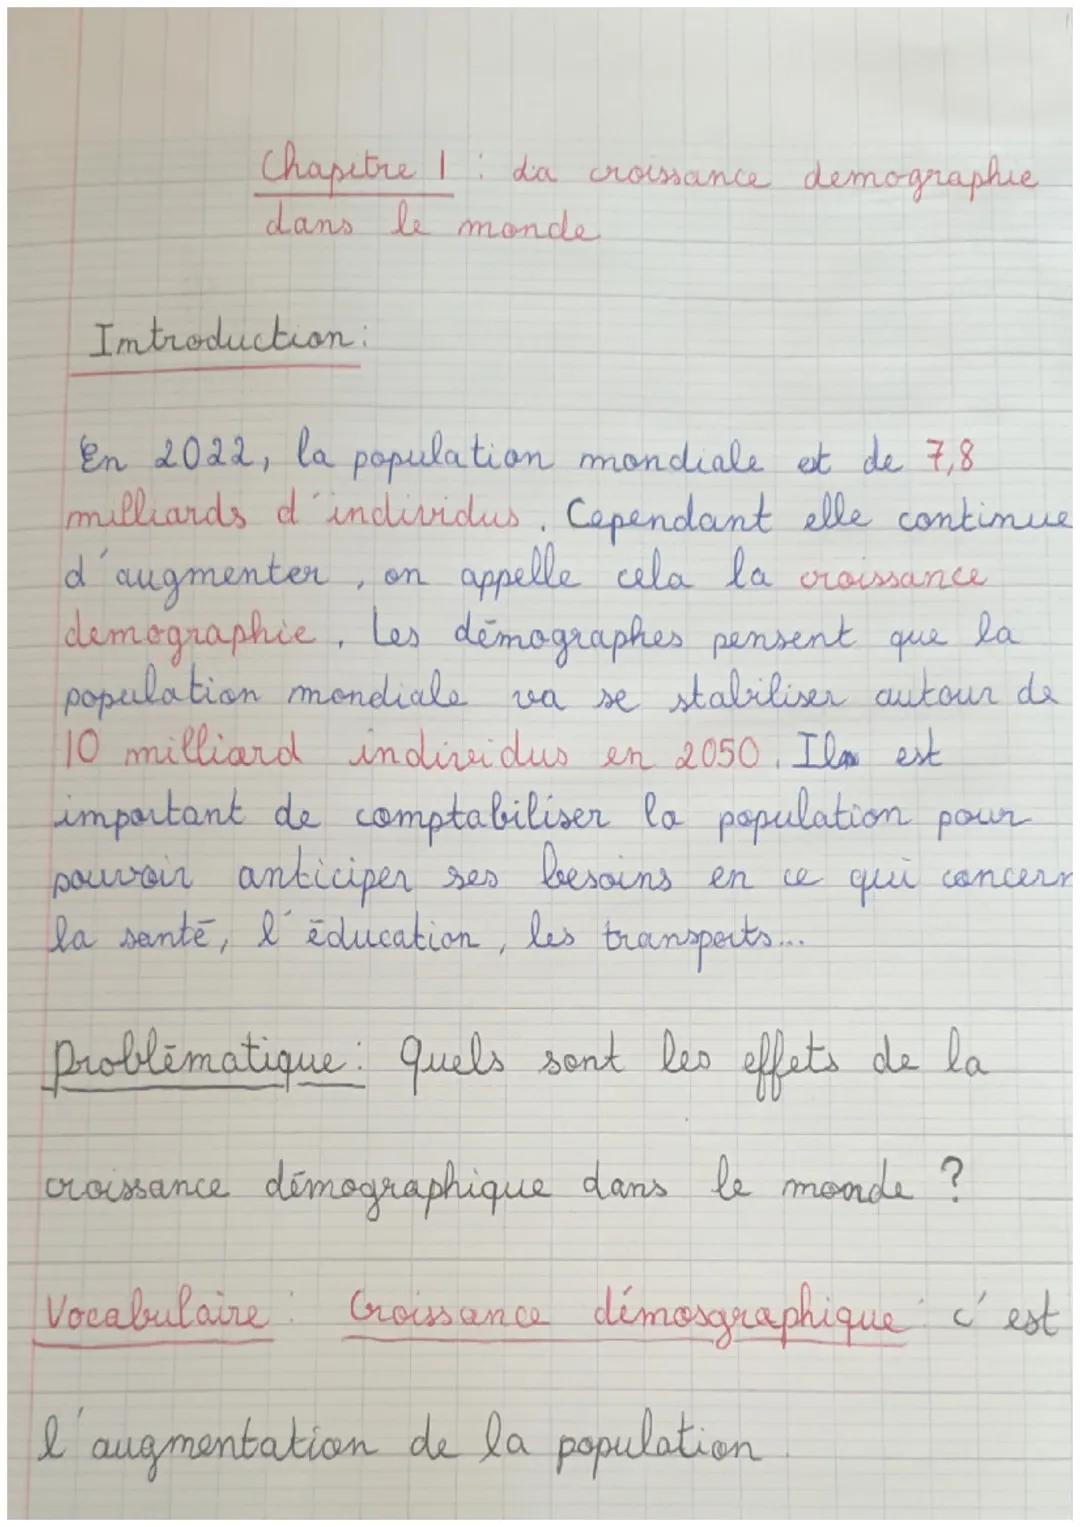 Chapitre 1 : La croissance demographie
dans le monde
Introduction :
En 2022, la population mondiale est de 7,8
milliards d'individus. Cependant elle continue
d'augmenter, on appelle cela la croissance
demographie. Les démographes pensent que la
population mondiale va se stabiliser autour de
10 milliard individus en 2050. Il est
important de comptabiliser la population pour
pouvoir anticiper ses besoins en ce qui concern
la santé, l'éducation, les transports...
Problématique : Quels sont les effets de la
croissance démographique dans le monde ?
Vocabulaire : Croissance démosgraphique : c'est
l'augmentation de la population.